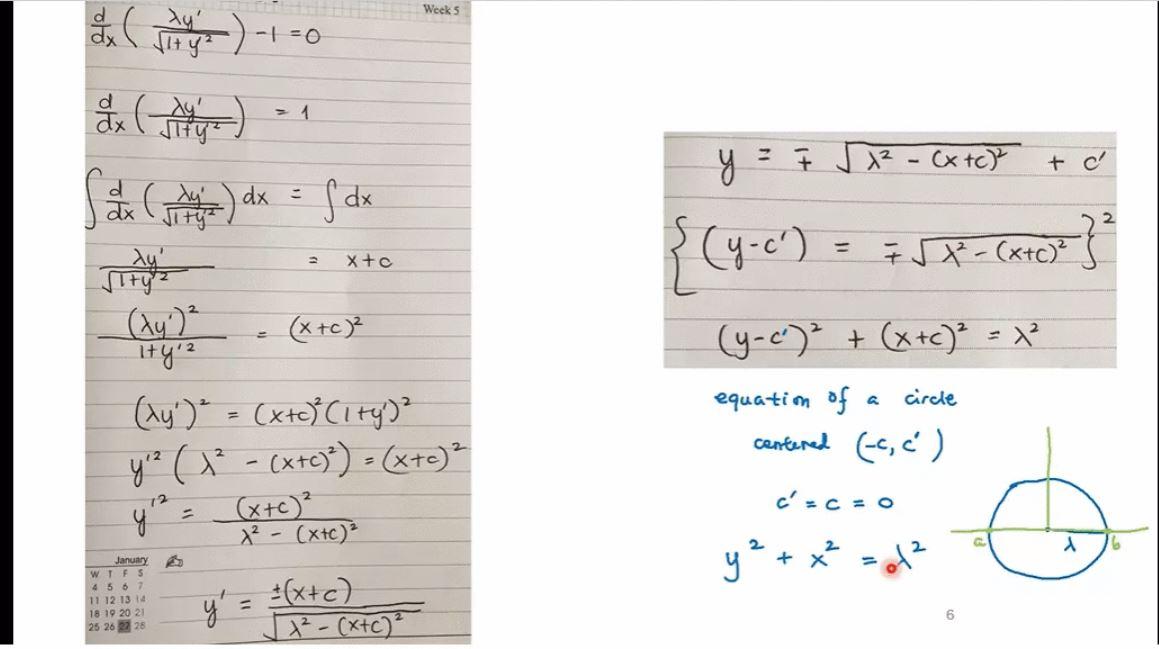 Week 5
d/dx ( λy' / √(1+y'²) ) - 1 = 0
d/dx ( λy' / √(1+y'²) ) = 1
∫ d/dx ( λy' / √(1+y'²) ) dx = ∫ dx
λy' / √(1+y'²) = x+c
(λy')² / 1+y'² = (x+c)²
(λy')² = (x+c)²(1+y')²
y'² ( λ² - (x+c)² ) = (x+c)²
y'² = (x+c)² / λ² - (x+c)²
January
W T F S
4 5 6 7
11 12 13 14
18 19 20 21
25 26 27 28
y' = ±(x+c) / √(λ² - (x+c)²)
y = ∓ √(λ² - (x+c)²) + c'
{ (y-c') = ∓ √(λ² - (x+c)²) }²
(y-c')² + (x+c)² = λ²
equation of a circle
centered (-c, c')
c' = c = 0
y² + x² = λ²
a λ b
6